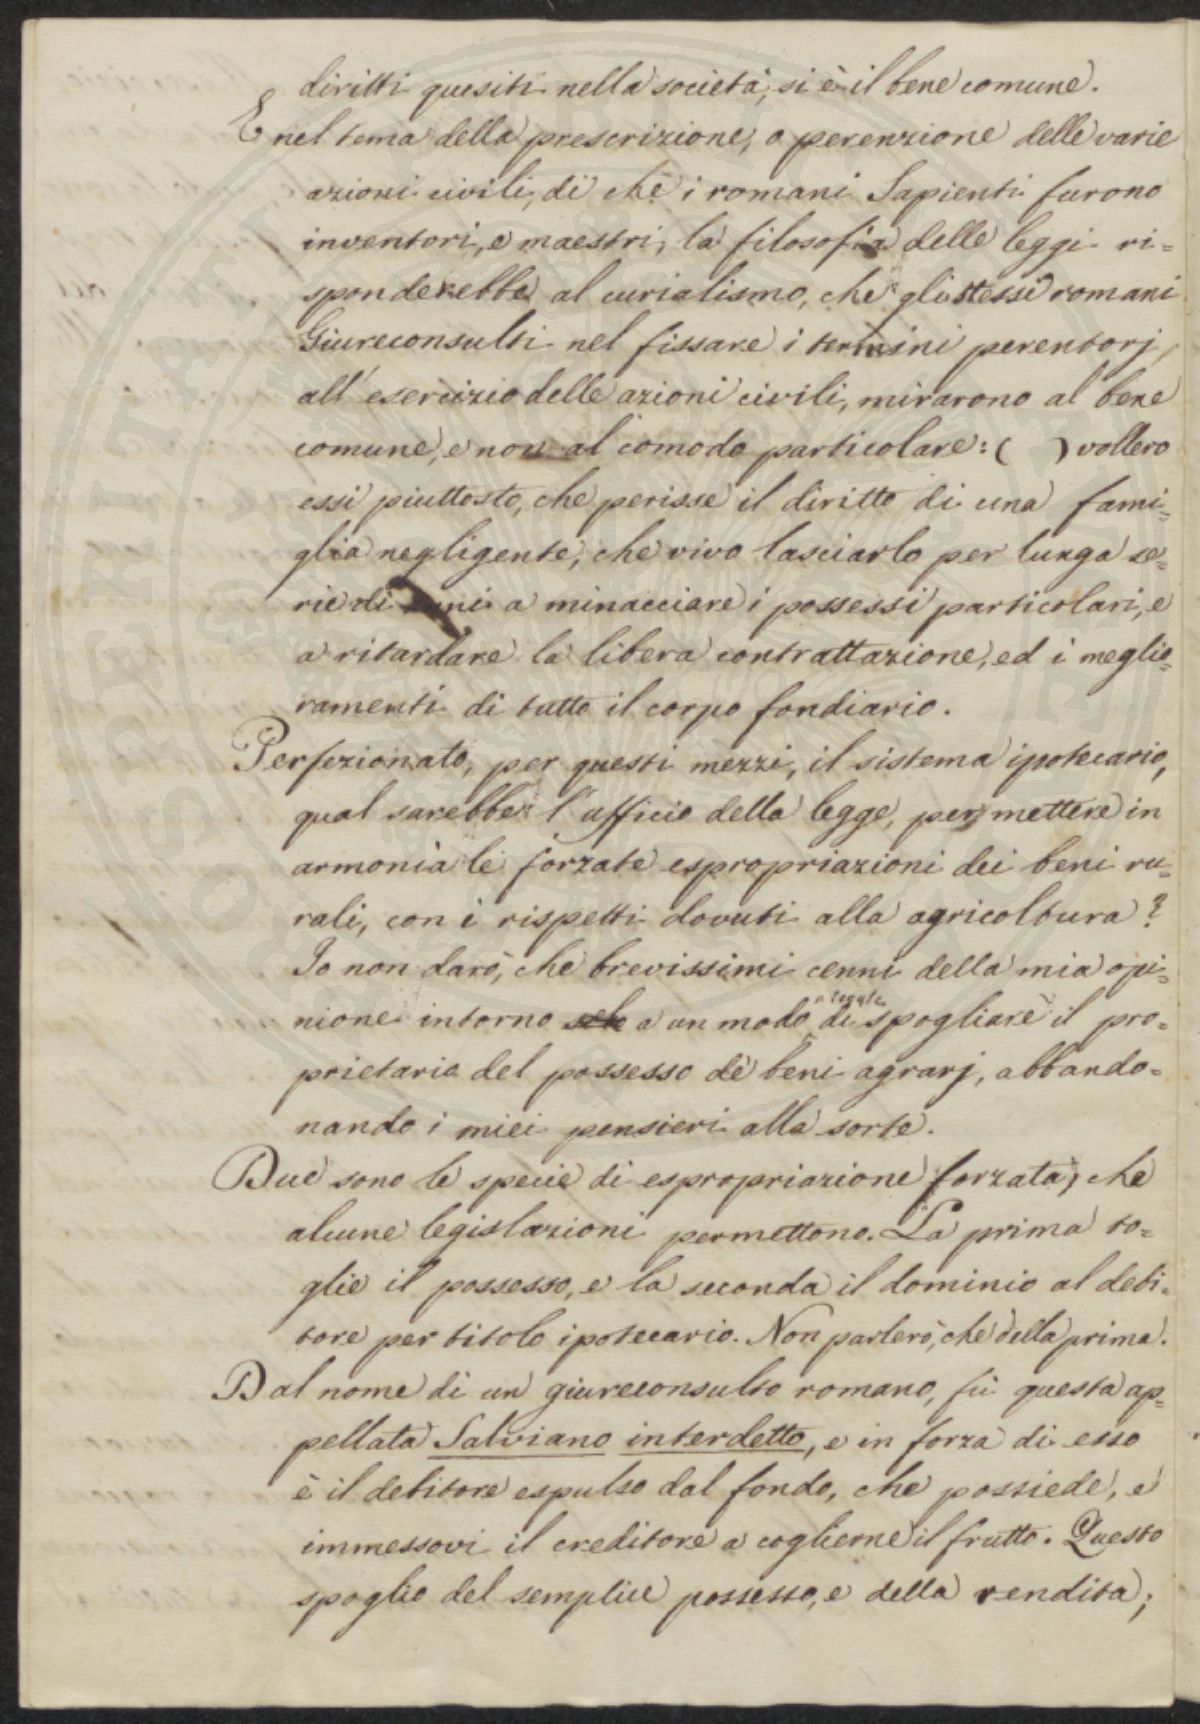 diritti quesiti nella società, si è il bene comune.
E nel tema della prescrizione, o perenzione delle varie
azioni civili, di che i romani Sapienti furono
inventori, e maestri, la filosofia delle leggi ri=
sponderebbe al curialismo, che gli stessi romani
Giureconsulti nel fissare i termini perentorj,
all'esercizio delle azioni civili, mirarono al bene
comune, e non al comodo particolare: ( ) vollero
essi piuttosto, che perisse il diritto di una fami=
glia negligente, che vivo lasciarlo per lunga se=
rie di anni a minacciare i possessi particolari, e
a ritardare la libera contrattazione, ed i meglio=
ramenti di tutto il corpo fondiario.
Perfezionato, per questi mezzi, il sistema ipotecario,
qual sarebbe l'ufficio della legge, per mettere in
armonia le forzate espropriazioni dei beni ru=
rali, con i rispetti dovuti alla agricoltura?
Io non darò, che brevissimi cenni della mia opi=
nione intorno a un modo legale di spogliare il pro=
prietario del possesso de' beni agrarj, abbando=
nando i miei pensieri alla sorte.
Due sono le specie di espropriazione forzata, che
alcune legislazioni permettono. La prima to=
glie il possesso, e la seconda il dominio al debi=
tore per titolo ipotecario. Non parlerò, che della prima.
Dal nome di un giureconsulto romano, fù questa ap=
pellata Salviano interdetto, e in forza di esso
è il debitore espulso dal fondo, che possiede, e
immessovi il creditore a coglierne il frutto. Questo
spoglio del semplice possesso, e della rendita,